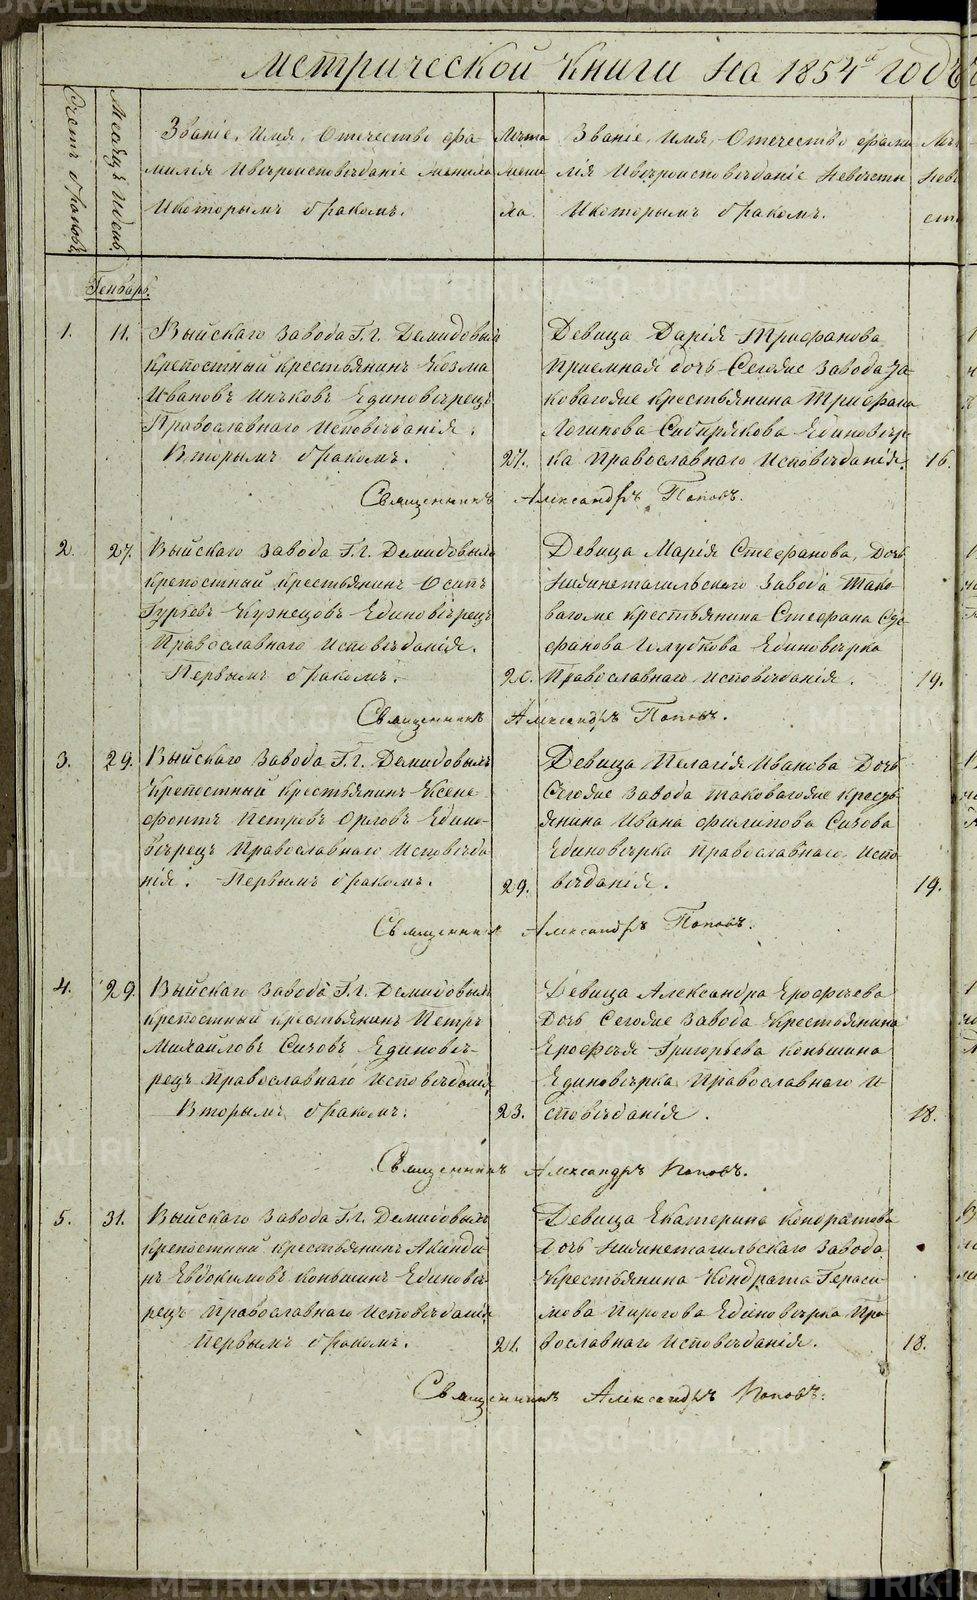 Метрической книги на 1854й годъ
Счетъ браковъ.
Месяцъ и день.
Званiе, Имя, Отечество фа-
милiя и вѣроисповѣданiе жениха
и которымъ бракомъ.
Лѣта
жени
ха.
Званiе, Имя, Отечество фами
лiя и вѣроисповѣданiе невѣсты
и которымъ бракомъ.
Лѣ
невѣ
ст
Генварь.
1. 11. Выйскаго завода Г.г. Демидовыхъ
крепостный крестьянинъ Козма
Ивановъ Единовѣрецъ
Православнаго Исповѣданiя.
Вторымъ бракомъ. 27.
Девица Дарiя Трифанова
Приемная дочь Сегоже завода та-
ковагоже крестьянина Трифана
Логинова Сибирякова Единовѣр-
ка Православнаго Исповѣданiя. 16.
Священникъ Александръ Поповъ.
2. 27. Выйскаго завода Г.г. Демидовыхъ
крепостный крестьянинъ Осипъ
Гурьевъ Кузнецовъ Единовѣрецъ
Православнаго Исповѣданiя.
Первымъ бракомъ. 20.
Девица Марiя Стефанова, Дочь
Нижнетагильскаго завода тако-
вагоже крестьянина Стефана
фанова Голубкова Единовѣрка
Православнаго Исповѣданiя. 19.
Священникъ Александръ Поповъ.
3. 29. Выйскаго завода Г.г. Демидовыхъ
крепостный крестьянинъ Ксене-
фонтъ Петровъ Орловъ Едино-
вѣрецъ Православнаго Исповѣда
нiя. Первымъ бракомъ. 29.
Девица Пелагiя Иванова Дочь
Сегоже завода таковагоже кресть
янина Ивана Филипова Сизова
Единовѣрка Православнаго Испо-
вѣданiя. 19.
Священникъ Александръ Поповъ.
4. 29. Выйскаго завода Г.г. Демидовыхъ
крепостный крестьянинъ Петръ
Михайловъ Сизовъ Единовѣ-
рецъ Православнаго Исповѣданiя,
Вторымъ бракомъ. 23.
Девица Александра Ерофѣева
Дочь Сегоже завода крестьянина
Ерофѣя Григорьева Коньшина
Единовѣрка Православнаго И-
сповѣданiя. 18.
Священникъ Александръ Поповъ.
5. 31. Выйскаго завода Г.г. Демидовыхъ
крепостный крестьянинъ Акинди
нъ Евдокимовъ Коньшинъ Единовѣ-
рецъ Православнаго Исповѣданiя
Первымъ бракомъ. 21.
Девица Екатерина Кондратова
Дочь Нижнетагильскаго завода
крестьянина Кондрата Гераси-
мова Пирогова Единовѣрка Пра
вославнаго Исповѣданiя. 18.
Священникъ Александръ Поповъ.
METRIKI.GASO-URAL.RU